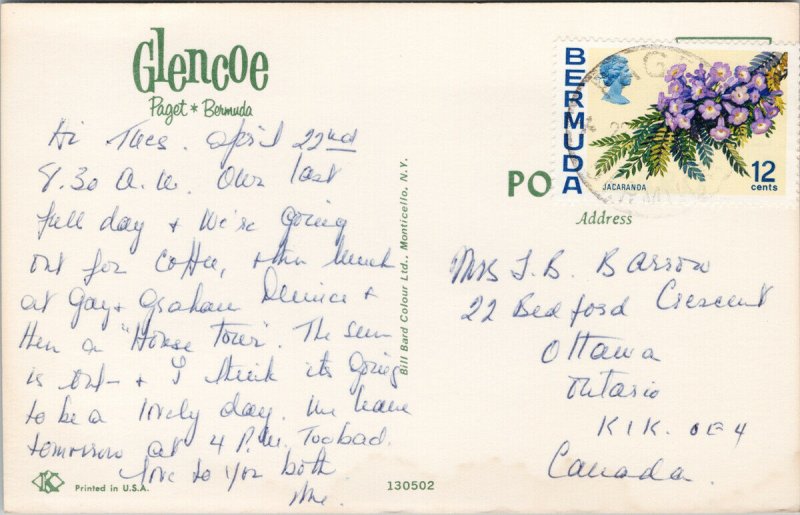 Glencoe
Paget * Bermuda
Hi Tues. April 22nd
8.30 A.M. Our last
full day & we're going
out for coffee, then lunch
at Gay & Graham &
then a "House Tour". The sun
is out - & I think its going
to be a lovely day. We leave
tomorrow at 4 P.M. Too bad.
love to you both
Me.
Printed in U.S.A.
Bill Bard Colour Ltd., Monticello, N.Y.
130502
BERMUDA
JACARANDA
12
cents
PO
Address
Mrs J. B. Barrow
22 Bedford Crescent
Ottawa
Ontario
K1K. 0E4
Canada.